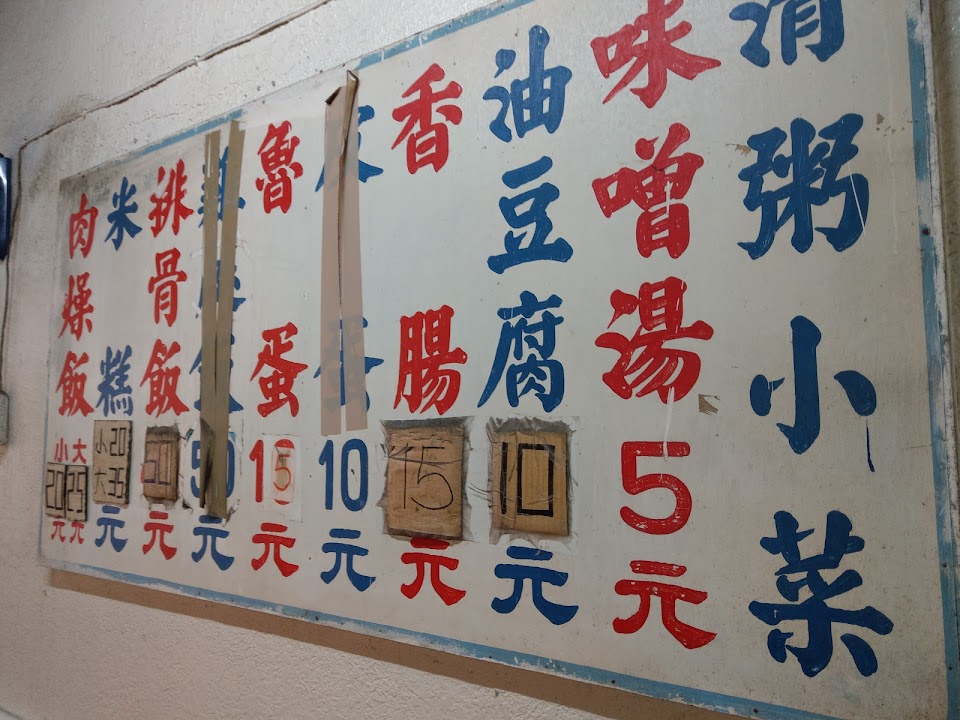 清粥小菜
味噌湯5元
油豆腐10元
香腸15元
蛋10元
魯蛋15元
雞飯50元
排骨飯元
米糕小20大35元
肉燥飯大25元小20元